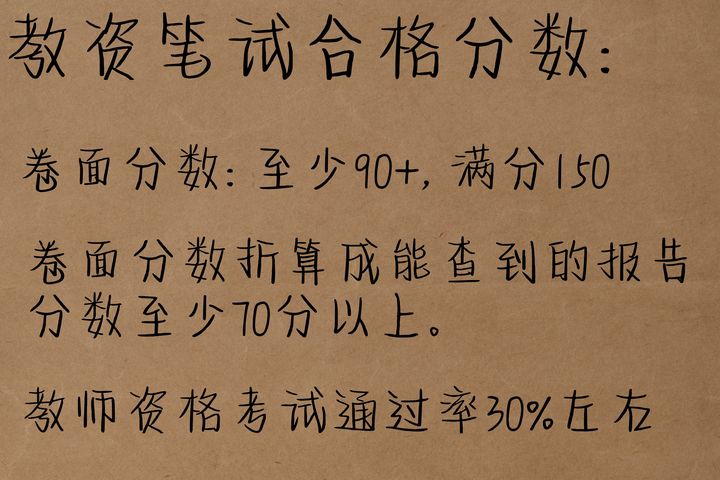 教资笔试合格分数:
卷面分数:至少90+,满分150
卷面分数折算成能查到的报告
分数至少70分以上。
教师资格考试通过率30%左右